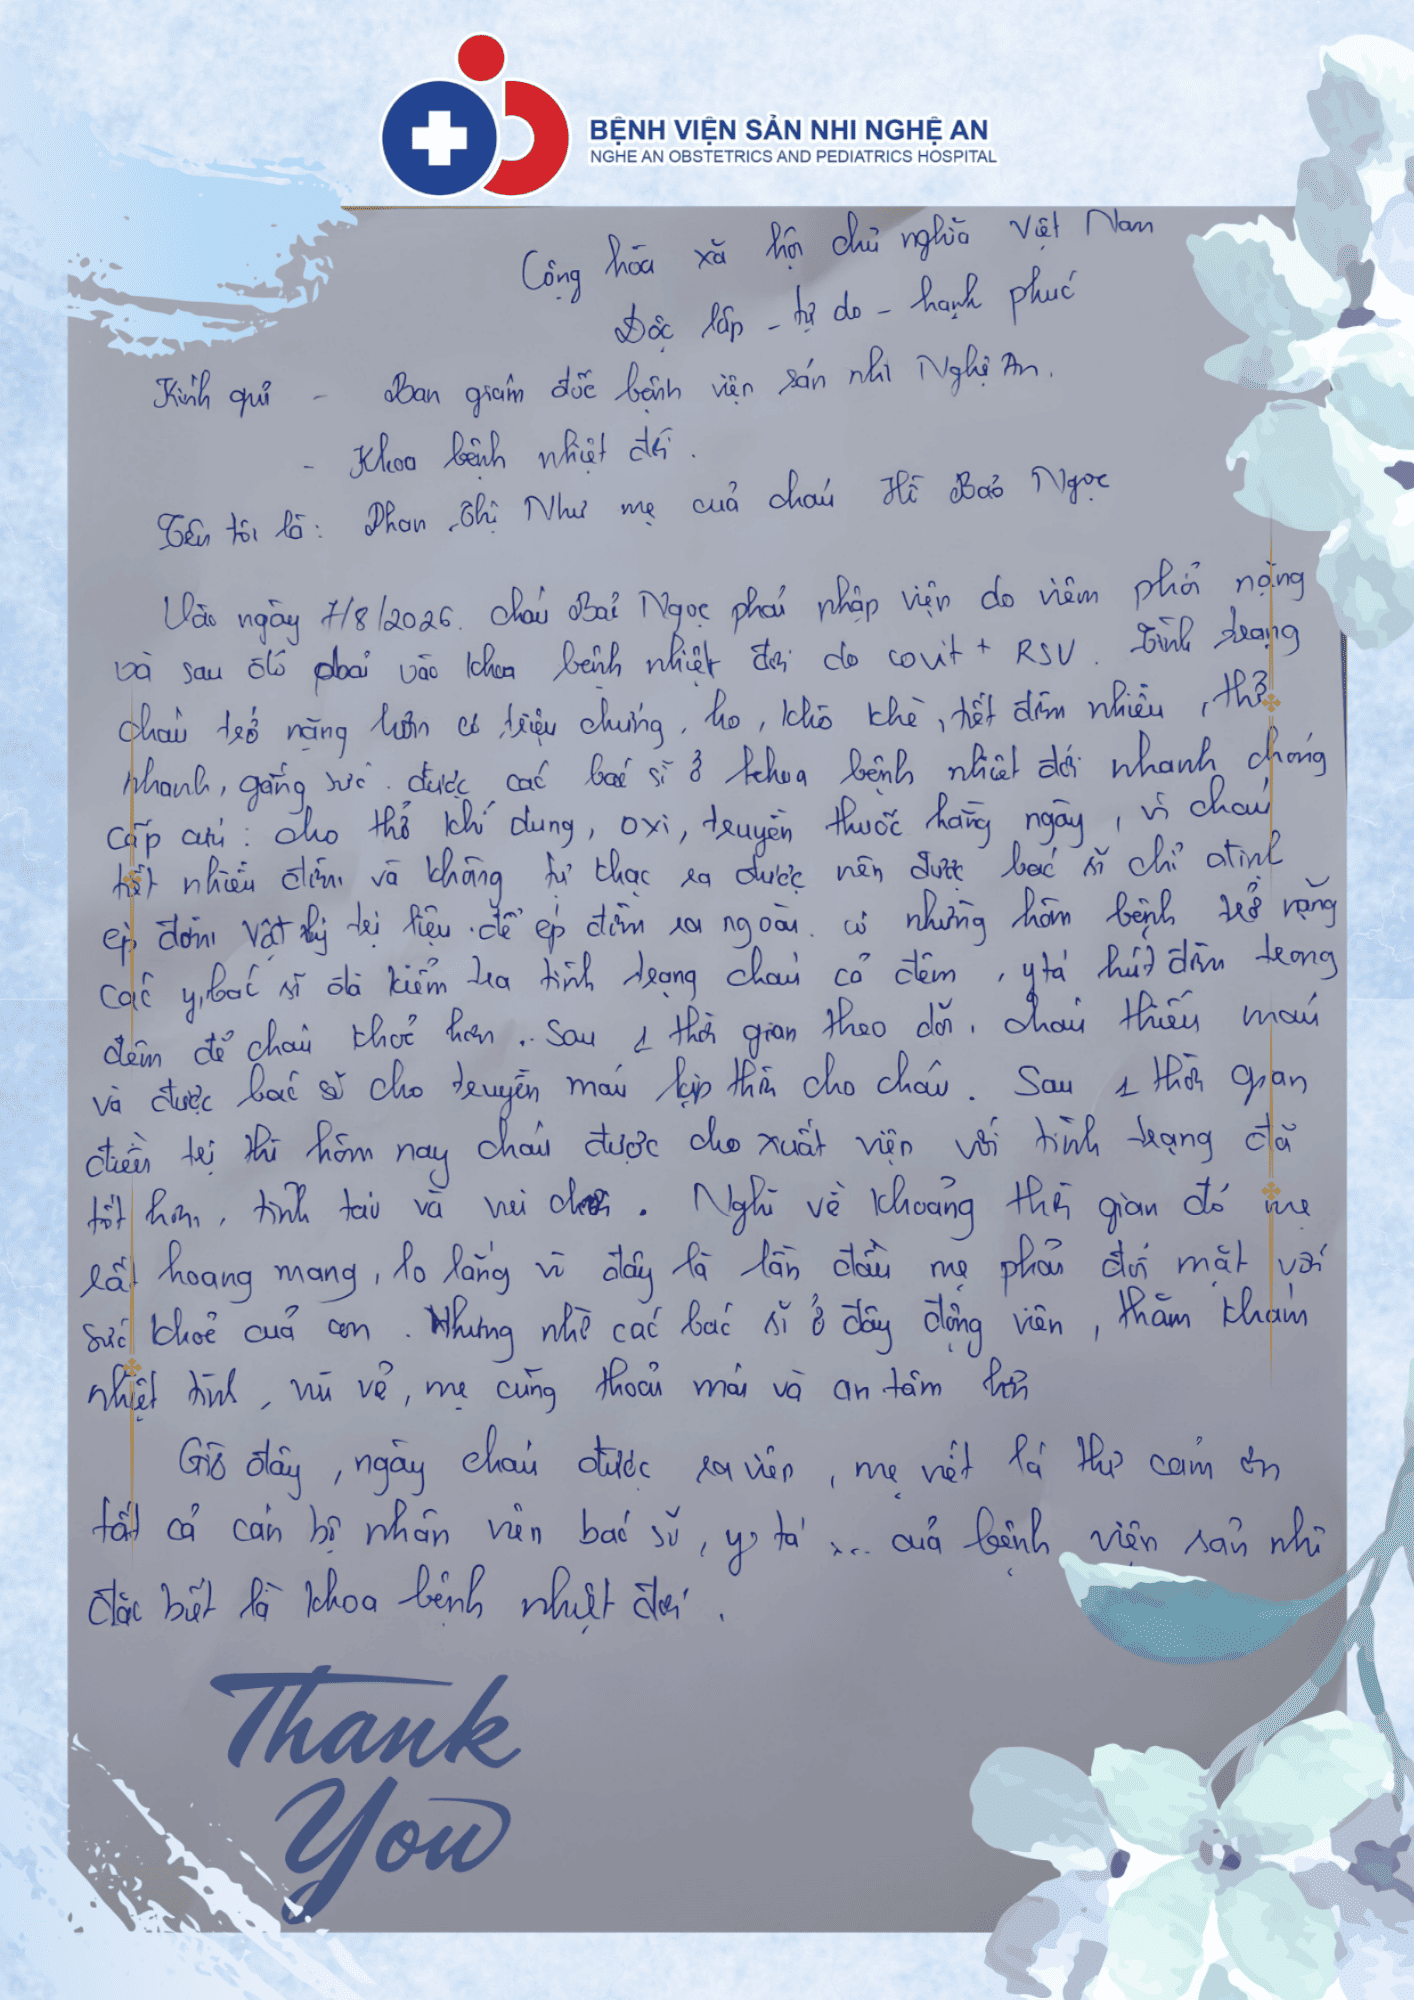 BỆNH VIỆN SẢN NHI NGHỆ AN
NGHE AN OBSTETRICS AND PEDIATRICS HOSPITAL
Cộng hòa xã hội chủ nghĩa Việt Nam
Độc lập - tự do - hạnh phúc
Kính gửi - Ban giám đốc bệnh viện sản nhi Nghệ An.
- Khoa bệnh nhiệt đới.
Tên tôi là: Phan Thị Như mẹ của cháu Hồ Bảo Ngọc
Vào ngày 7/8/2026. cháu Bảo Ngọc phải nhập viện do viêm phổi nặng
và sau đó phải vào khoa bệnh nhiệt đới do covit + RSV. Tình trạng
cháu trở nặng hơn có triệu chứng, ho, khò khè, tiết đờm nhiều, thở
nhanh, gắng sức. được các bác sĩ ở khoa bệnh nhiệt đới nhanh chóng
cấp cứu: cho thở khí dung, oxi, truyền thuốc hằng ngày, vì cháu
tiết nhiều đờm và không tự khạc ra được nên được bác sĩ chỉ định
ép đờm vật lý trị liệu để ép đờm ra ngoài. có những hôm bệnh trở nặng
các y, bác sĩ đã kiểm tra tình trạng cháu cả đêm, y tá hút đờm trong
đêm để cháu khoẻ hơn. Sau 1 thời gian theo dõi, cháu thiếu máu
và được bác sĩ cho truyền máu kịp thời cho cháu. Sau 1 thời gian
điều trị thì hôm nay cháu được cho xuất viện với tình trạng đã
tốt hơn, tỉnh táo và vui chơi. Nghĩ về khoảng thời gian đó mẹ
rất hoang mang, lo lắng vì đây là lần đầu mẹ phải đối mặt với
sức khoẻ của con. Nhưng nhờ các bác sĩ ở đây động viên, thăm khám
nhiệt tình, vui vẻ, mẹ cũng thoải mái và an tâm hơn
Giờ đây, ngày cháu được ra viện, mẹ viết lá thư cảm ơn
tất cả cán bộ nhân viên bác sĩ, y tá .... của bệnh viện sản nhi
đặc biết là khoa bệnh nhiệt đới.
Thank
You